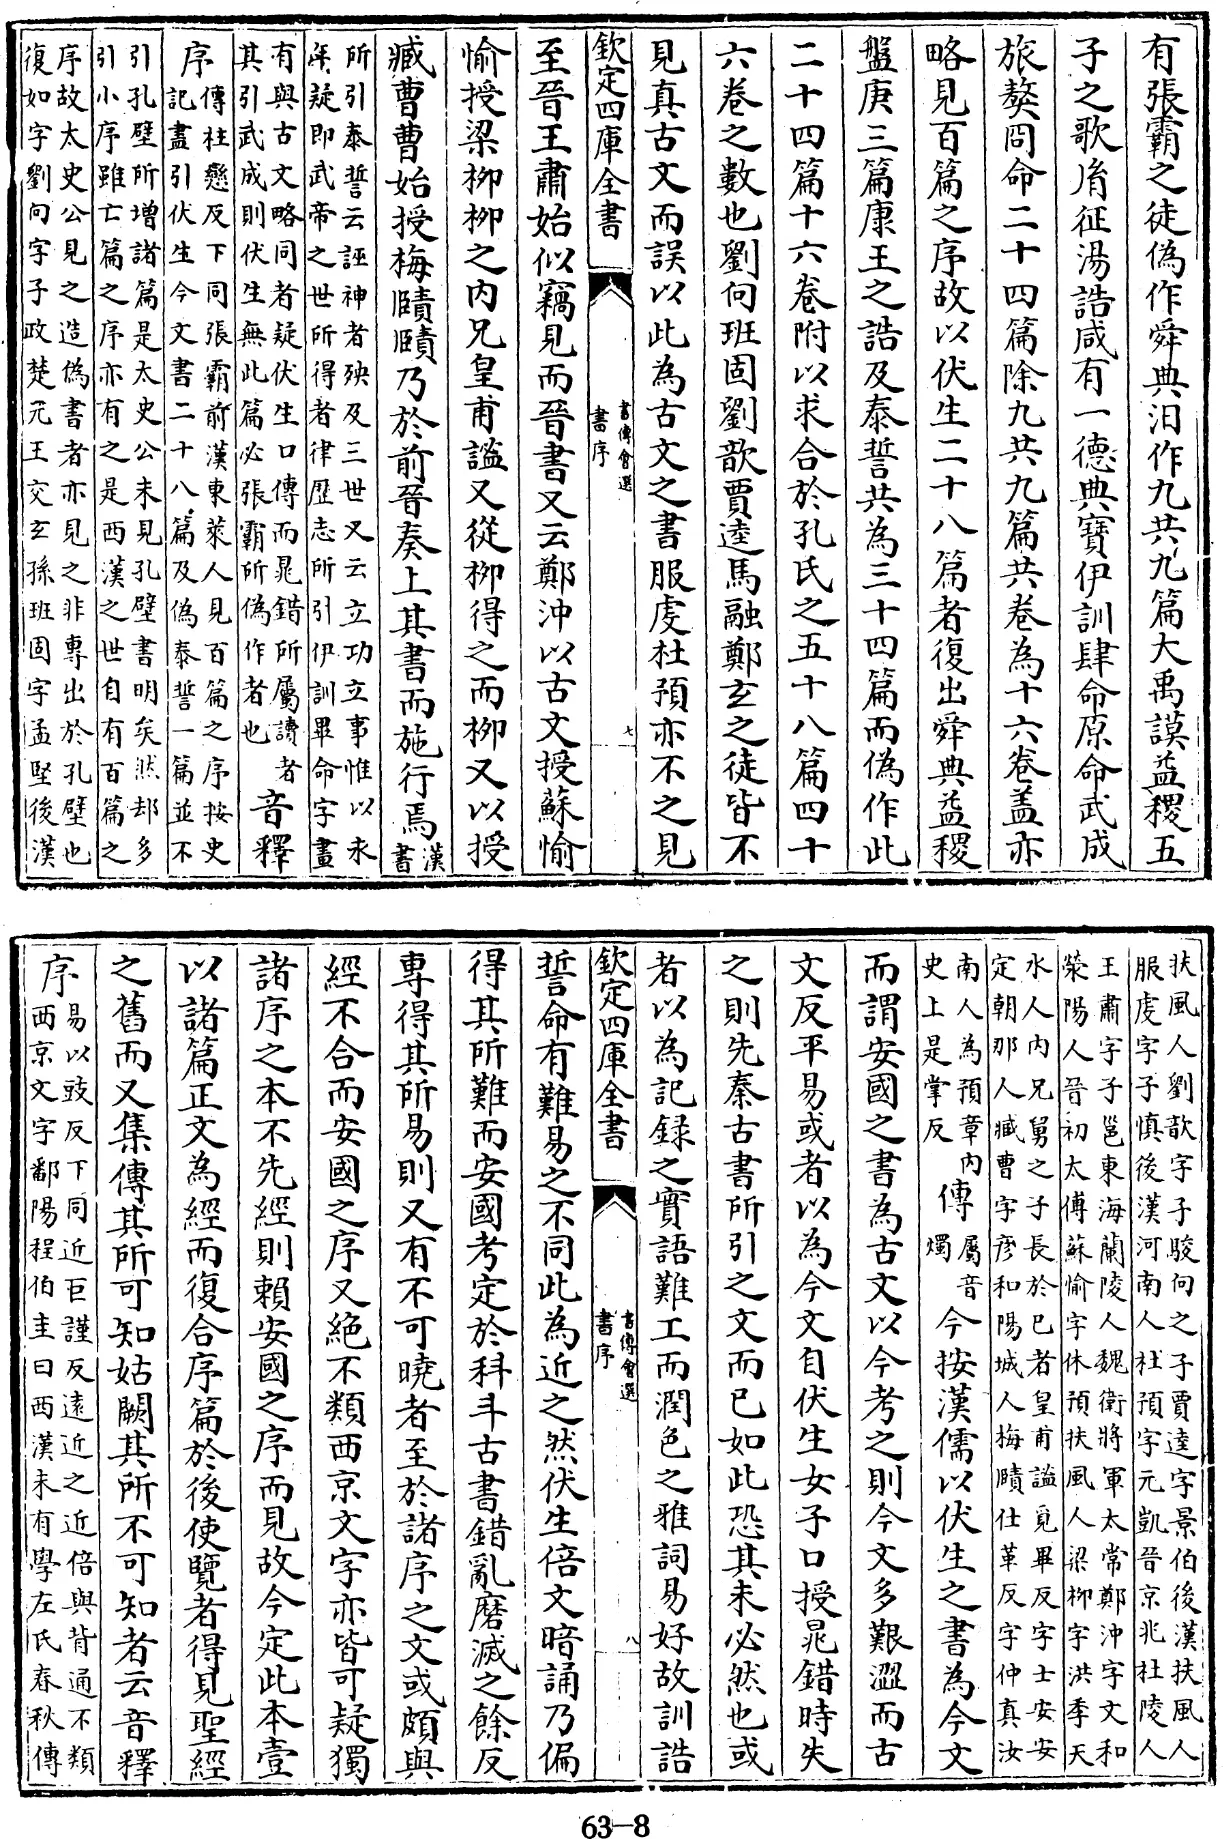 有張霸之徒偽作舜典汨作九共九篇大禹謨益稷五
子之歌胤征湯誥咸有一德典寶伊訓肆命原命武成
旅獒冏命二十四篇除九共九篇共卷為十六卷蓋亦
略見百篇之序故以伏生二十八篇者復出舜典益稷
盤庚三篇康王之誥及泰誓共為三十四篇而偽作此
二十四篇十六卷附以求合於孔氏之五十八篇四十
六卷之數也劉向班固劉歆賈逵馬融鄭玄之徒皆不
見真古文而誤以此為古文之書服虔杜預亦不之見
欽定四庫全書
書傳會選
書序
七
至晉王肅始似竊見而晉書又云鄭沖以古文授蘇愉
愉授梁柳柳之內兄皇甫謐又從柳得之而柳又以授
臧曹曹始授梅賾賾乃於前晉奏上其書而施行焉漢書
所引泰誓云誣神者殃及三世又云立功立事惟以永
年疑即武帝之世所得者律歷志所引伊訓畢命字畫
有與古文略同者疑伏生口傳而晁錯所屬讀者
其引武成則伏生無此篇必張霸所偽作者也
音釋
序
傳柱戀反下同張霸前漢東萊人見百篇之序按史
記盡引伏生今文書二十八篇及偽泰誓一篇並不
引孔壁所增諸篇是太史公未見孔壁書明矣然却多
引小序雖亡篇之序亦有之是西漢之世自有百篇之
序故太史公見之造偽書者亦見之非專出於孔壁也
復如字劉向字子政楚元王交玄孫班固字孟堅後漢
扶風人劉歆字子駿向之子賈逵字景伯後漢扶風人
服虔字子慎後漢河南人杜預字元凱晉京兆杜陵人
王肅字子邕東海蘭陵人魏衛將軍太常鄭沖字文和
滎陽人晉初太傅蘇愉字休預扶風人梁柳字洪季天
水人內兄舅之子長於已者皇甫謐覓畢反字士安安
定朝那人臧曹字彥和陽城人梅賾仕革反字仲真汝
南人為預章內
史上是掌反
傳
屬音
燭
今按漢儒以伏生之書為今文
而謂安國之書為古文以今考之則今文多艱澀而古
文反平易或者以為今文自伏生女子口授晁錯時失
之則先秦古書所引之文而已如此恐其未必然也或
者以為記錄之實語難工而潤色之雅詞易好故訓誥
欽定四庫全書
書傳會選
書序
八
誓命有難易之不同此為近之然伏生倍文暗誦乃偏
得其所難而安國考定於科斗古書錯亂磨滅之餘反
專得其所易則又有不可曉者至於諸序之文或頗與
經不合而安國之序又絕不類西京文字亦皆可疑獨
諸序之本不先經則賴安國之序而見故今定此本壹
以諸篇正文為經而復合序篇於後使覽者得見聖經
之舊而又集傳其所可知姑闕其所不可知者云音釋
序
易以豉反下同近巨謹反遠近之近倍與背通不類
西京文字鄱陽程伯圭曰西漢未有學左氏春秋傳
63-8